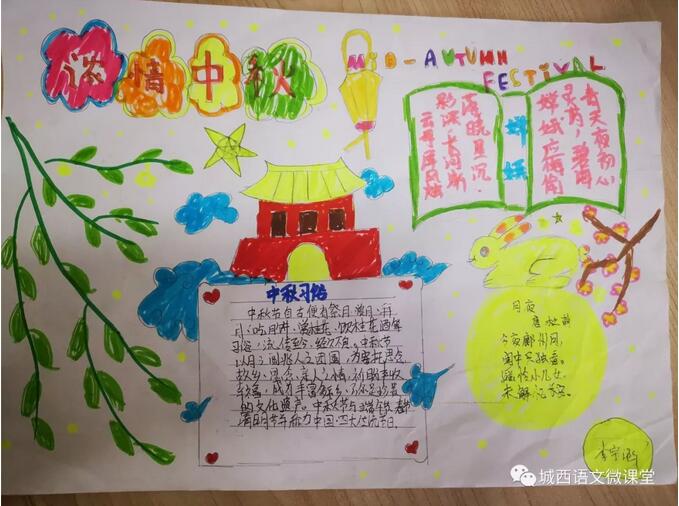 浓情中秋
MID-AUTUMN
FESTIVAL
嫦娥
云母屏风烛影深，
长河渐落晓星沉．
嫦娥应悔偷灵药，
碧海青天夜夜心
中秋习俗
中秋节自古便有祭月、赏月、拜
月、吃月饼、赏桂花、饮桂花酒等
习俗，流传至今，经久不息。中秋节
以月之圆兆人之团圆，为寄托思念
故乡，思念亲人之情，祈盼丰收
幸福，成为丰富多彩、弥足珍贵
的文化遗产。中秋节与端午节、春节、
清明节并称为中国四大传统节日。
月夜
唐 杜甫
今夜鄜州月，
闺中只独看。
遥怜小儿女，
未解忆长安
城西语文微课堂